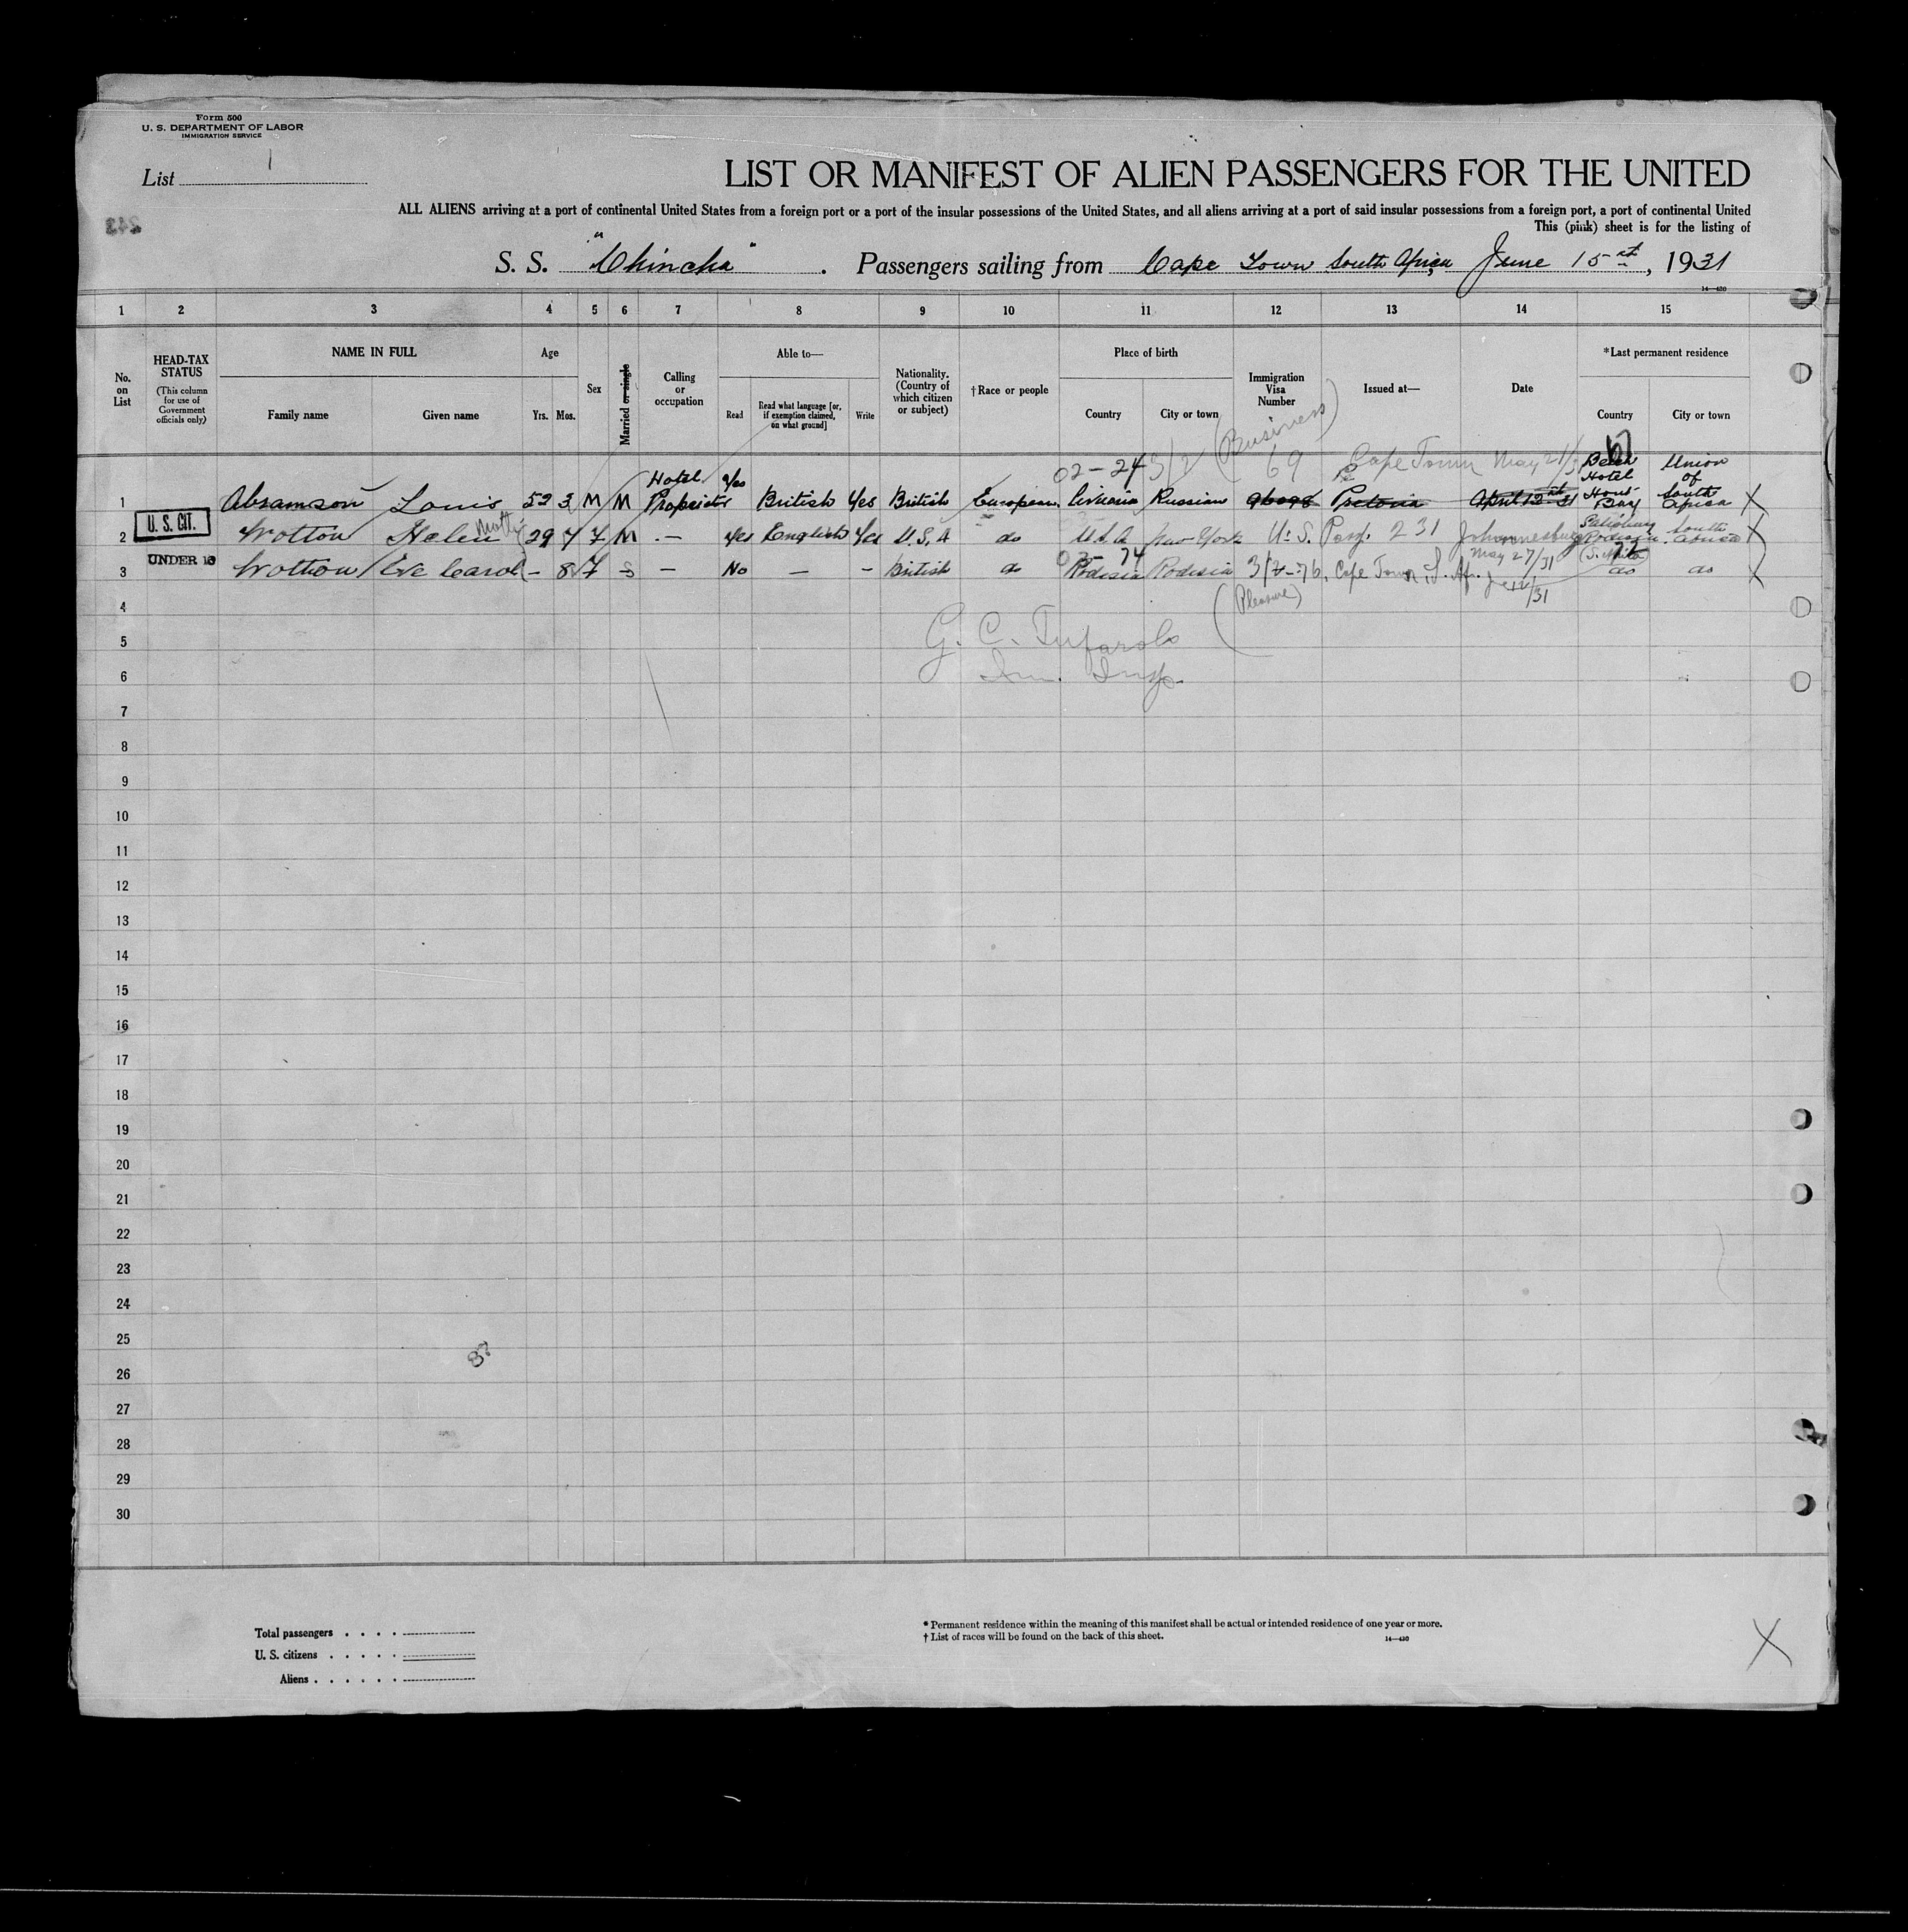 Form 500
U. S. DEPARTMENT OF LABOR
IMMIGRATION SERVICE
List 1
LIST OR MANIFEST OF ALIEN PASSENGERS FOR THE UNITED
ALL ALIENS arriving at a port of continental United States from a foreign port or a port of the insular possessions of the United States, and all aliens arriving at a port of said insular possessions from a foreign port, a port of continental United
This (pink) sheet is for the listing of
S. S. "Chincha" . Passengers sailing from Cape Town South Africa, June 15th, 1931
14—430
1 2 3 4 5 6 7 8 9 10 11 12 13 14 15
No. on List
HEAD-TAX STATUS
(This column for use of Government officials only)
NAME IN FULL
Family name Given name
Age
Yrs. Mos.
Sex
Married or single
Calling or occupation
Able to—
Read Read what language [or, if exemption claimed, on what ground] Write
Nationality. (Country of which citizen or subject)
†Race or people
Place of birth
Country City or town
Immigration Visa Number
Issued at—
Date
*Last permanent residence
Country City or town
(Business)
02-24 3/2 69 Cape Town May 21/31
1 Abramson Louis 52 3 M M Hotel Proprietor Yes British Yes British European Russian Pretoria Hotel Hout Bay Union of South Africa X
U. S. CIT.
2 Wotton Helen 29 7 F M - Yes English Yes U.S.A do U.S.A New York U.S. Pass. 231 Johannesburg May 27/31 South Africa X
UNDER 16
3 Wotton Eve Carol - 8 F S — No — - British do Rodesia Rodesia 3/2-76, Cape Town, S. Afr. do do X
(Pleasure)
4
5
G. C. Tufarolo
6
Im. Insp.
7
8
9
10
11
12
13
14
15
16
17
18
19
20
21
22
23
24
25
87
26
27
28
29
30
Total passengers . . . .
U. S. citizens . . . . .
Aliens . . . . . .
* Permanent residence within the meaning of this manifest shall be actual or intended residence of one year or more.
† List of races will be found on the back of this sheet.
14—430
X